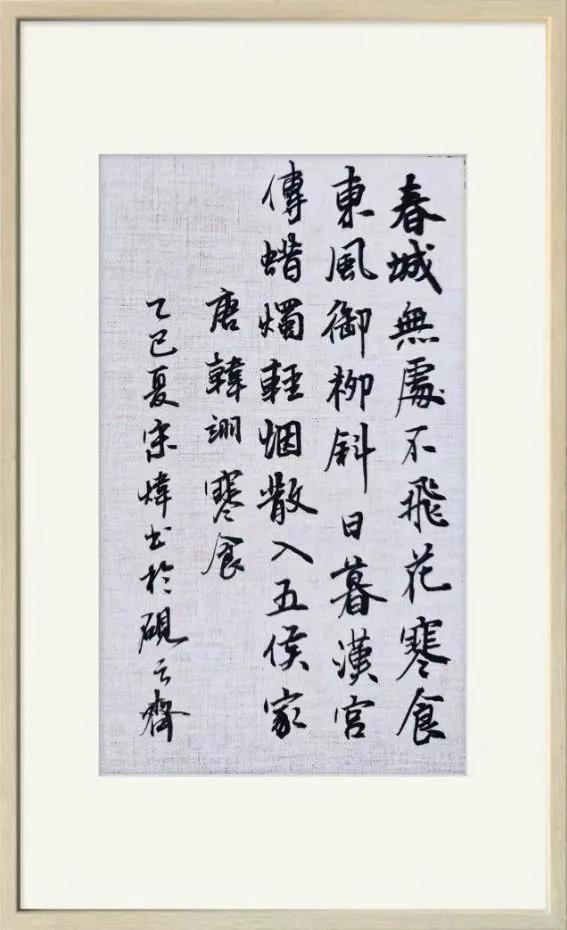 春城無處不飛花寒食
東風御柳斜日暮漢宮
傳蜡燭輕烟散入五侯家
唐韓翃寒食
乙巳夏宗煒书於硯云齋